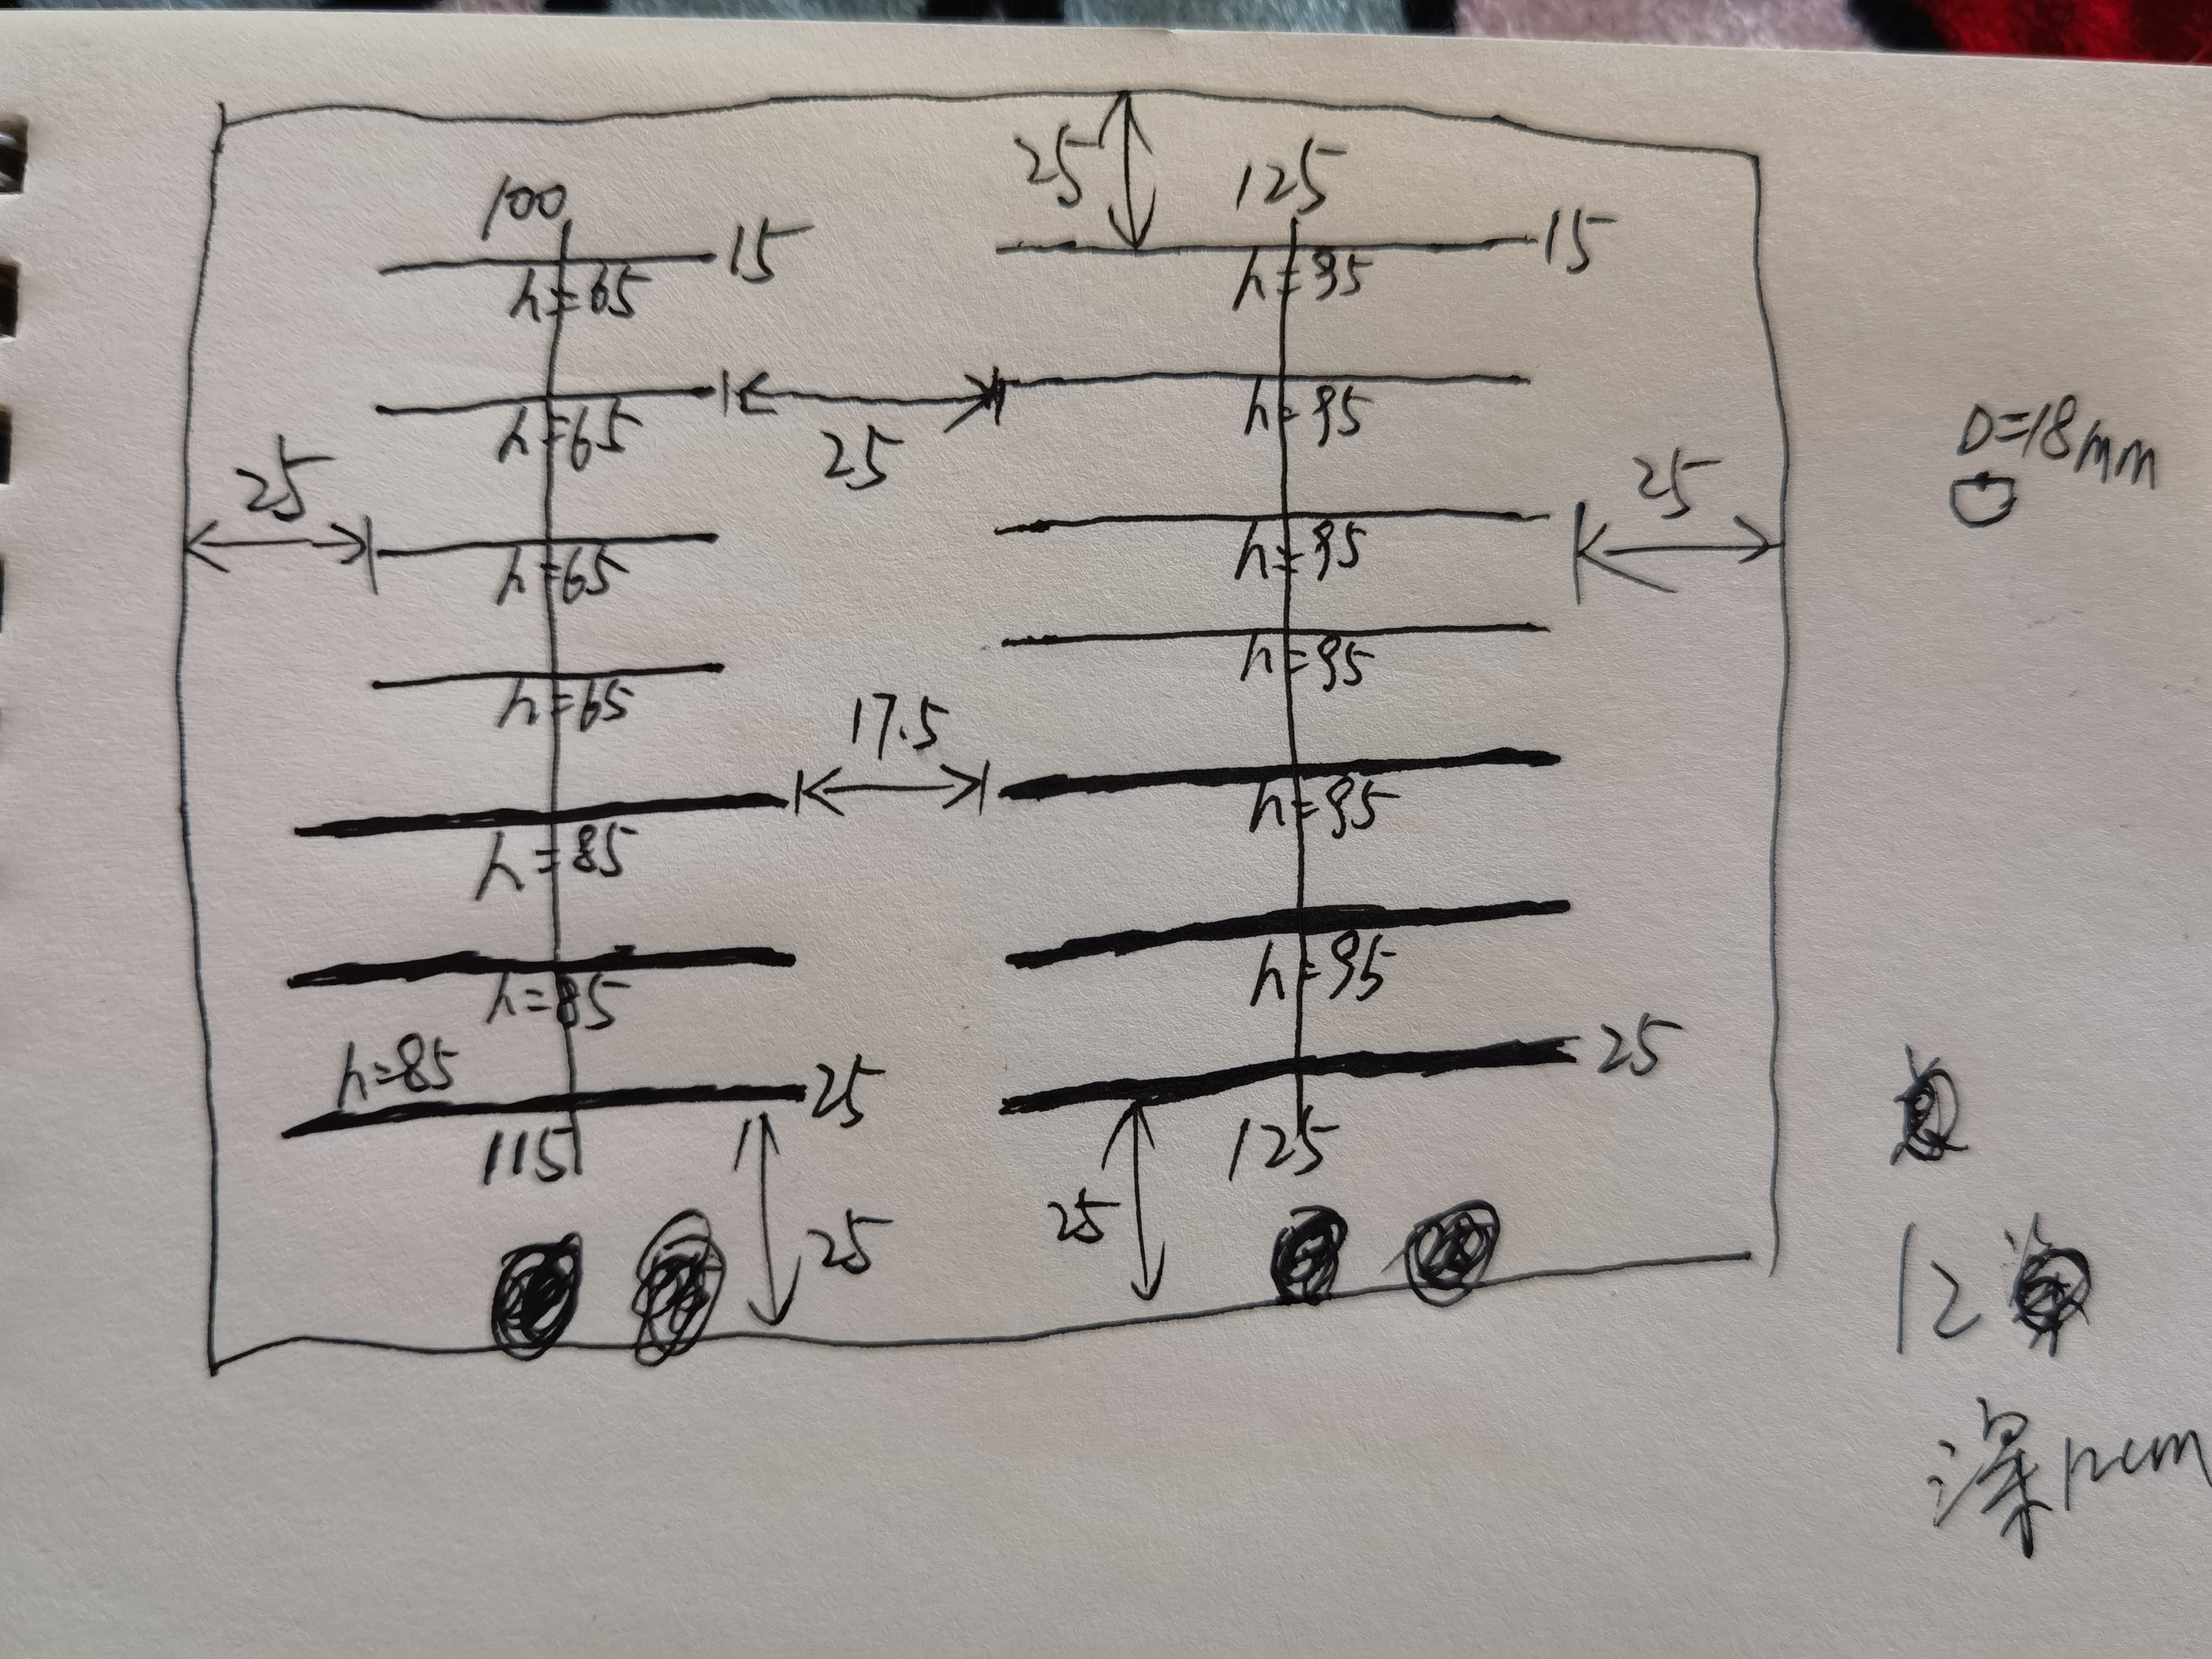 25
100 125
15 15
h=65 h=95
h=65 25 h=95
D=18mm
25 25
h=65 h=95
h=65 h=95
17.5
h=85 h=95
h=85 h=95
h=85 25 25
115 125
25 25
12
深12cm